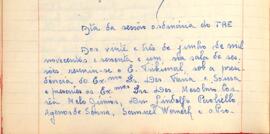 Ata da sessão ordinária do TRE
Aos vinte e três de junho de mil
novecentos e sessenta e um na sala de ses-
sões reuniu-se o E. Tribunal, sob a presi-
dência do Exmo Sr. Des. Faria e Sousa
e presentes os Exmos Srs. Des. Merolino Cor-
rêa, Melo Júnior, Drs. Lindolfo
Agenor de Senna, Samuel Werneck e o Pro-